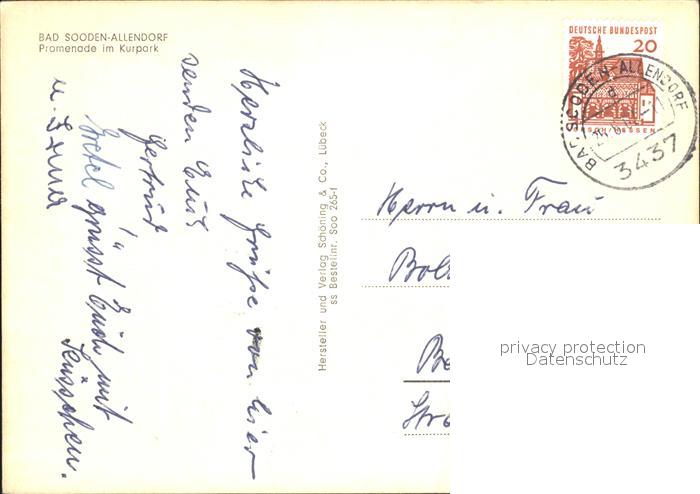 BAD SOODEN-ALLENDORF
Promenade im Kurpark
Herzliche Grüße von hier
senden Euch
Gertrud
u. Irma
Gretel grüsst Euch mit
Küsschen.
Hersteller und Verlag Schöning & Co., Lübeck
ss Bestellnr. Soo 265-f
DEUTSCHE BUNDESPOST
20
BAD SOODEN-ALLENDORF
3437
Herrn u. Frau
Bol
Be
Str
privacy protection
Datenschutz